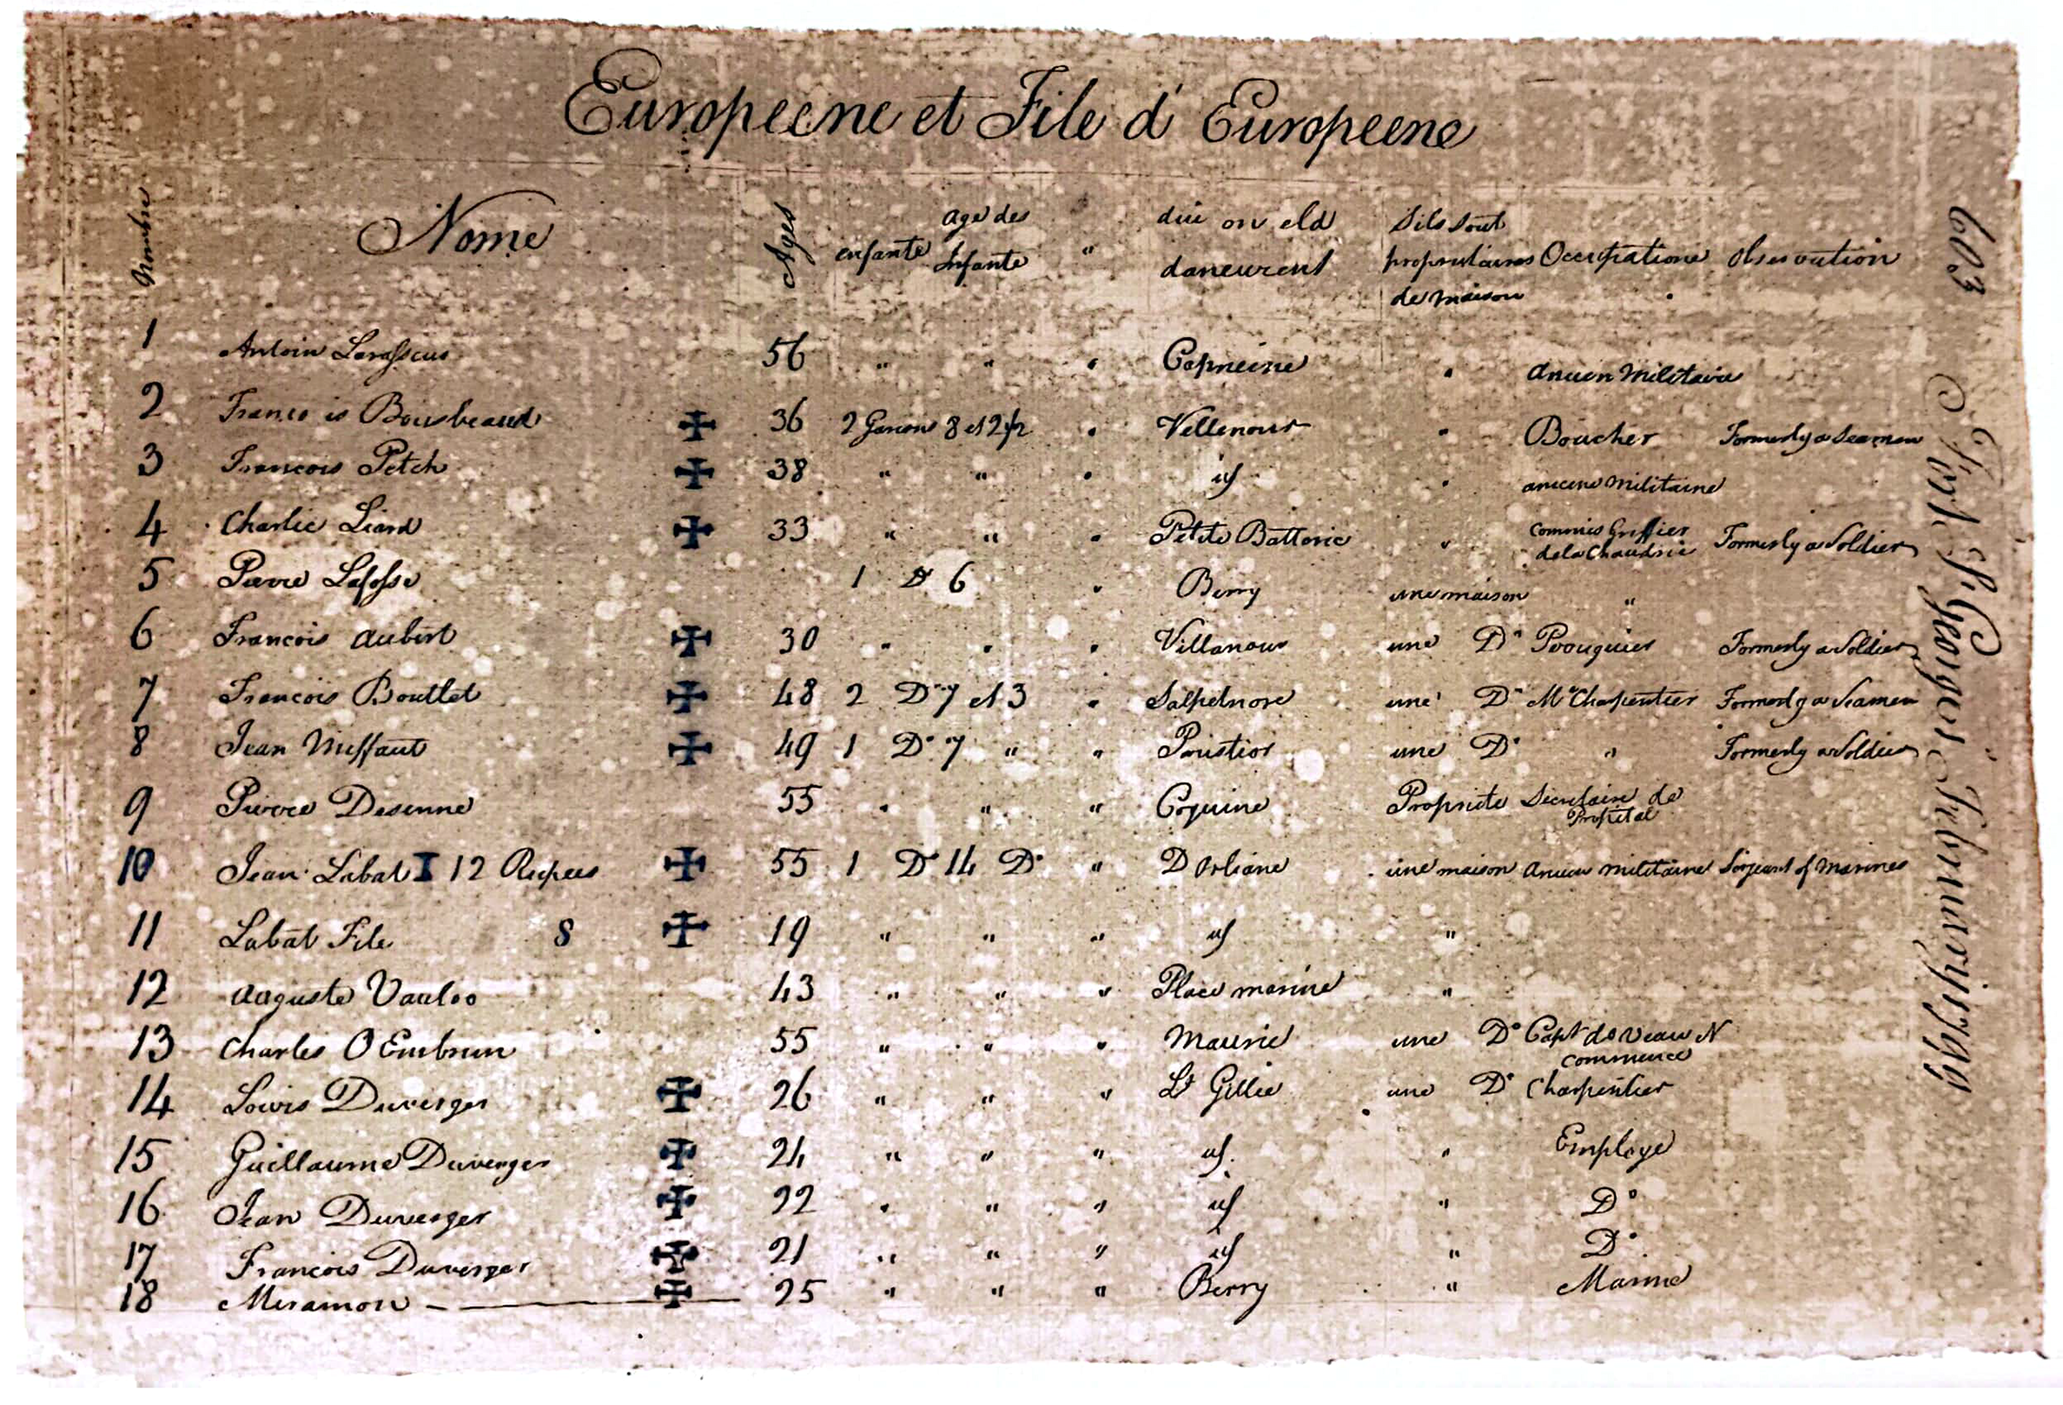 Europeene et File d' Europeene
Nombre Nome Ages enfante age des Infante " die on eld daneurent Sils Sout propriutaires de maison Occupatione Observation
1 Antoin " " " Capneine " Ancien Militaire 56
2 Franco is Bousbeaud ✠ 36 2 Garcons 8 et 2 1/2 " Vellenour " Boucher Formerly a Seamen
3 Francois Petch ✠ 38 " " " " Militaine
4 Charlie Liard ✠ 33 " " " Petite Batterie " Commis Greffier de la Chaudrie Formerly a Soldier
5 Pierre Lafosse 1 Do 6 " Berry une maison "
6 Francois Aubert ✠ 30 " " " Villanour une Do Formerly a Soldier
7 Francois Bouttet ✠ 48 2 Do 7 et 3 " Salpetnore une Do Mc Charpentier Formerly a Seamen
8 Jean Meffaut ✠ 49 1 Do 7 " " une Do " Formerly a Soldier
9 Pierre Desenne 55 " " " Coquine Propriete Secretaire de Propital
10 Jean Labat I 12 Rupees ✠ 55 1 Do 14 Do " D Orliane une maison Ancien militaine Sirjeant of Marines
11 Labat File 8 ✠ 19 " " " "
12 Auguste Vauloo 43 " " " Place marine "
13 Charles O Embrun 55 " " " Maurie une Do Capt de Veau N Commence
14 Lowis Duverger ✠ 26 " " " Lt Gillie une Do Charpentier
15 Guillaume Duverger ✠ 24 " " " " Employe
16 Jean Duverger ✠ 22 " " " " Do
17 Francois Duverger ✠ 21 " " " " Do
18 Miramon ✠ 25 " " " Berry " Marine
603 Fort St Georges Februwery 1799